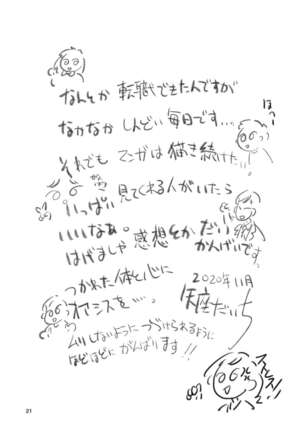 なんとか 転職できたんですが
なかなか しんどい 毎日です…。
はっ
それでも マンガは 描き続けたい!
いっぱい 見てくれる人がいたら
いいなぁ。
はげましや 感想とか だい
かんげいです。
つかれた体と心に
オアシスを…。
2020年11月
座だいち
ムリしないように つづけられるように
ほどほどに がんばります!!
21